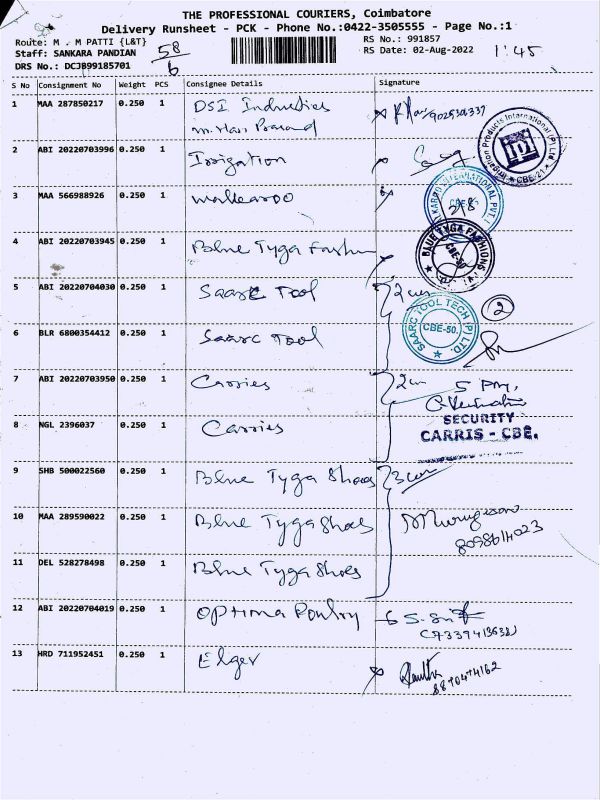 THE PROFESSIONAL COURIERS, Coimbatore
Delivery Runsheet - PCK - Phone No.:0422-3505555 - Page No.:1
Route: M . M PATTI {L&T}
RS No.: 991857
Staff: SANKARA PANDIAN
RS Date: 02-Aug-2022
1:45
58
6
DRS No.: DCJB99185701
S No Consignment No Weight PCS Consignee Details Signature
1 MAA 287850217 0.250 1 DSI Industries
m. Hari Prasad
2 ABI 20220703996 0.250 1 Irrigation
Irrigation Products International (P) Ltd
CBE-21
3 MAA 566988926 0.250 1
INTERNATIONAL PVT.
2/8
4 ABI 20220703945 0.250 1 Blue Tyga Fashion
BLUE TYGA FASHIONS
CBE-50
5 ABI 20220704030 0.250 1 Saarc Tool
2
6 BLR 6800354412 0.250 1 Saarc Tool
SAARC TOOL TECH P. LTD.
CBE-50.
7 ABI 20220703950 0.250 1 Carries
5 Pm,
8 NGL 2396037 0.250 1 Carries
SECURITY
CARRIS - CBE.
9 SHB 500022560 0.250 1 Blue Tyga Shoes
10 MAA 289590022 0.250 1 Blue Tyga Shoes
Murugesan
11 DEL 528278498 0.250 1 Blue Tyga Shoes
12 ABI 20220704019 0.250 1 Optima Poultry
13 HRD 711952451 0.250 1 Elgev